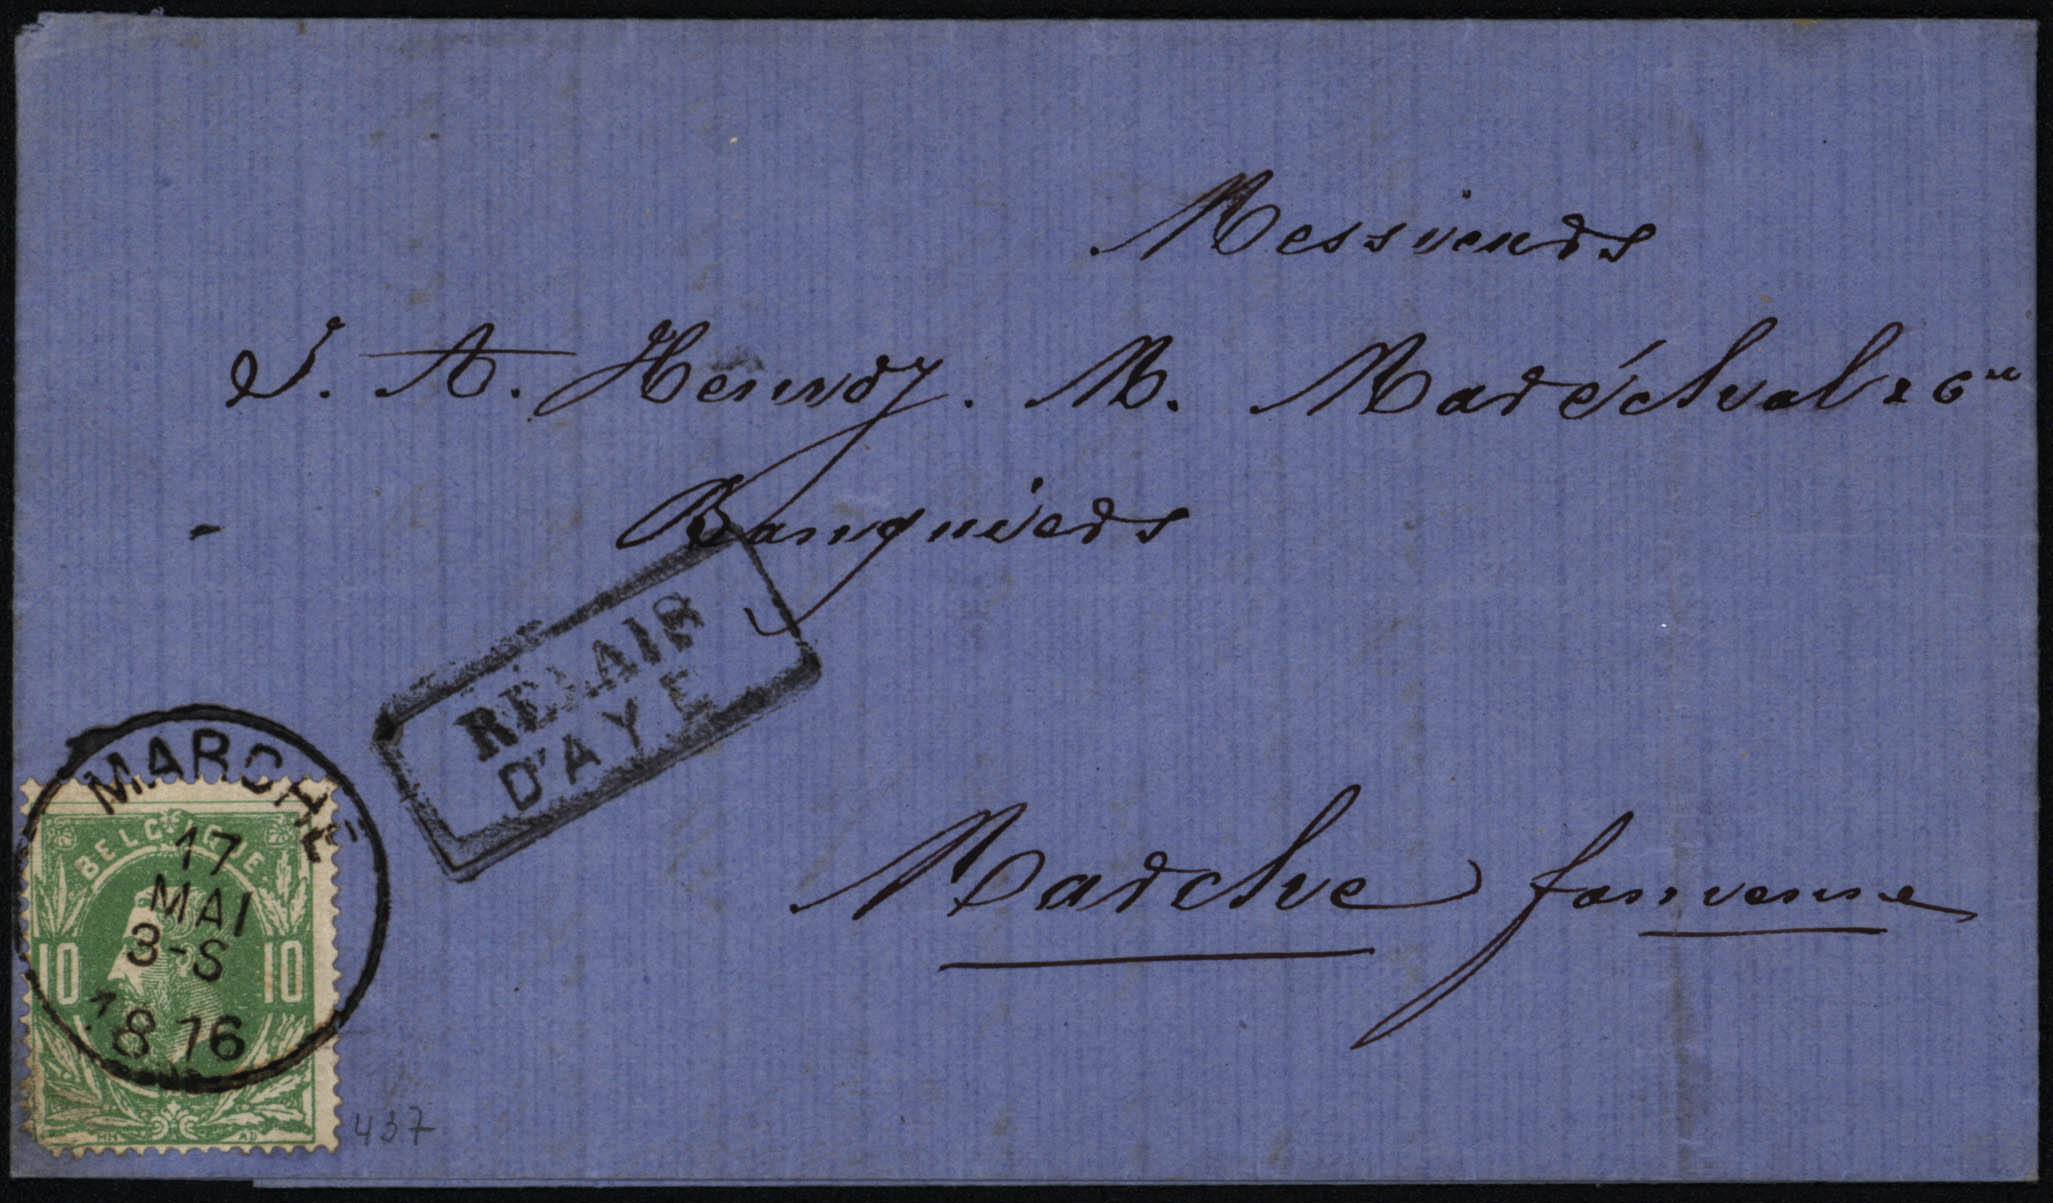 Messieurs
J. A. Henroz. M. Maréchal & Cie
Banquiers
RELAIS
D'AYE
MARCHE
17
MAI
3-S
1876
BELGIQUE
10 10
437
Marche famenne